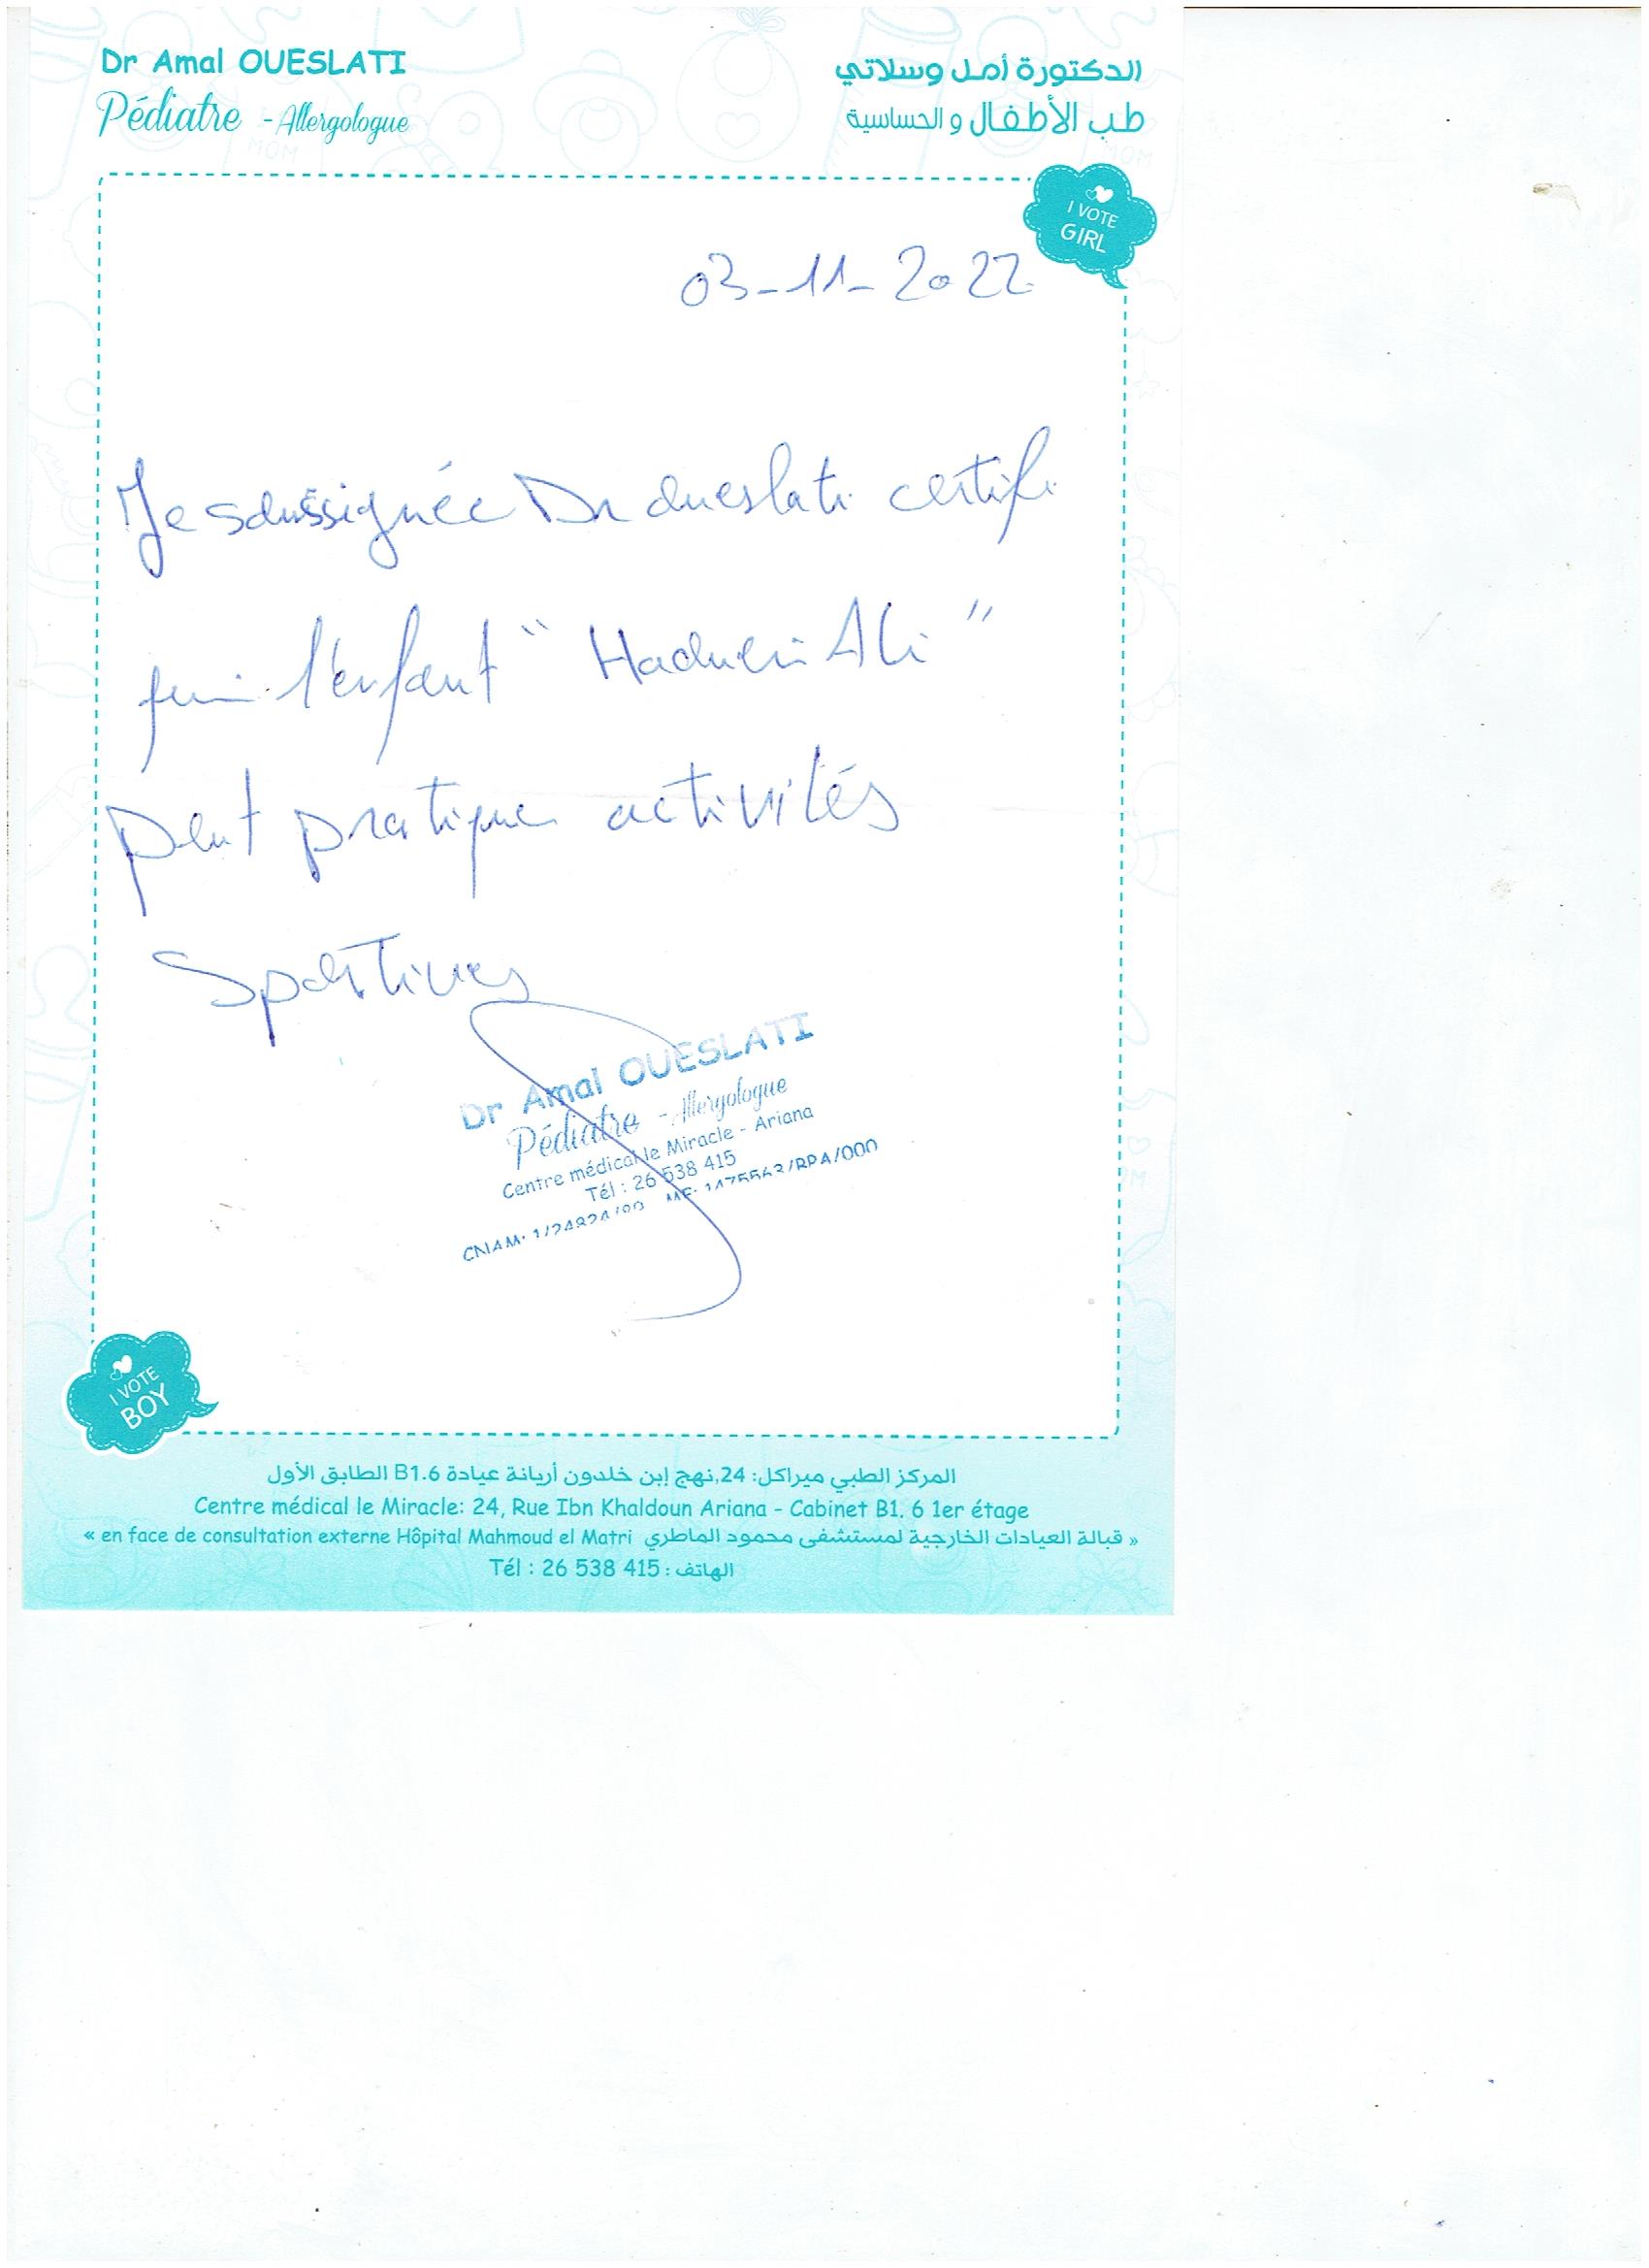 Dr Amal OUESLATI
Pédiatre - Allergologue
الدكتورة أمل وسلاتي
طب الأطفال و الحساسية
I VOTE
GIRL
03-11-2022
Je soussignée Dr Oueslati certifie
que l'enfant " Ali "
peut pratiquer activités
Sportives
Dr Amal OUESLATI
Pédiatre - Allergologue
Centre médical le Miracle - Ariana
Tél : 26 538 415
CNAM:
I VOTE
BOY
المركز الطبي ميراكل: 24,نهج إبن خلدون أريانة عيادة B1.6 الطابق الأول
Centre médical le Miracle: 24, Rue Ibn Khaldoun Ariana - Cabinet B1. 6 1er étage
« en face de consultation externe Hôpital Mahmoud el Matri قبالة العيادات الخارجية لمستشفى محمود الماطري »
Tél : 26 538 415 : الهاتف